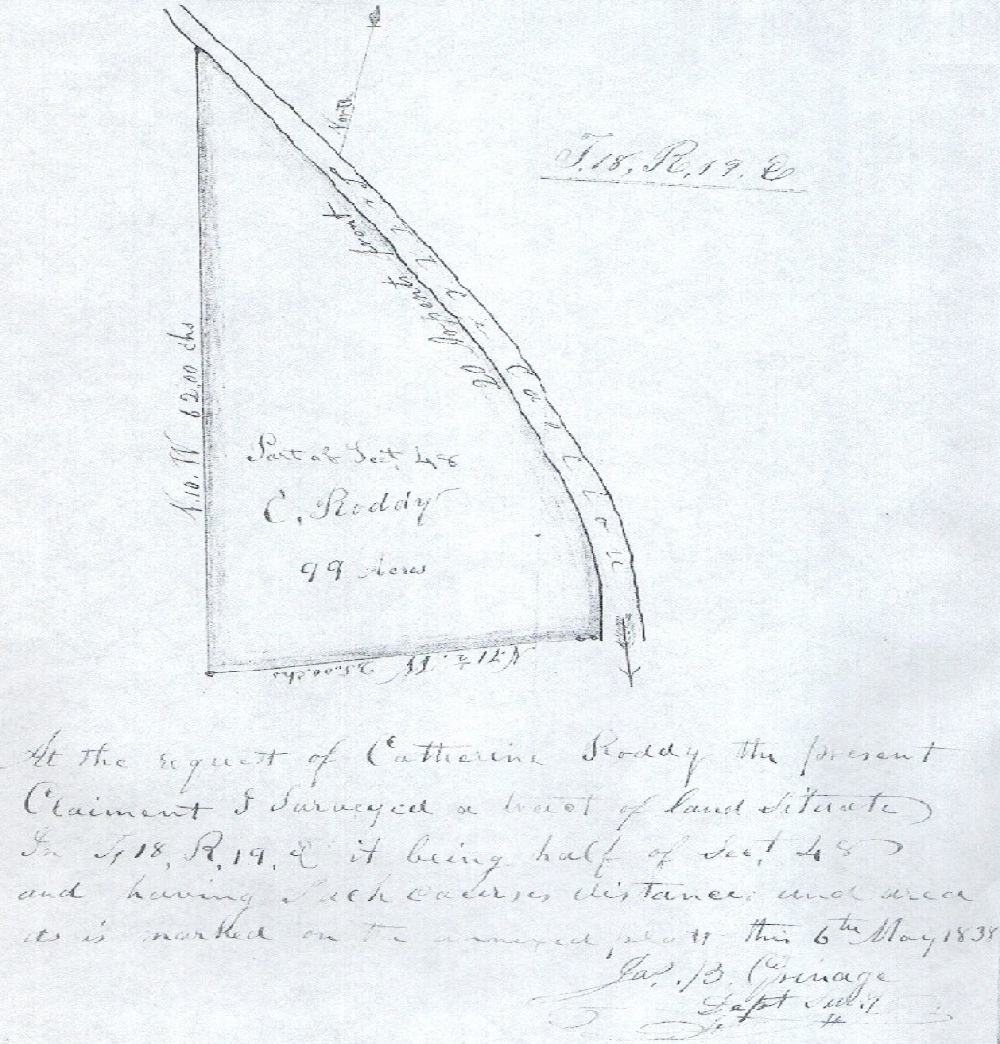 North
T. 18, R, 19, E
20 Arpents front
N. 10. W 62.00 chs
Part of Sect, 48
C. Roddy
99 Acres
N. 71 ½. W 35.00 chs
At the request of Catherine Roddy the present
Claiment I Surveyed a tract of land situate
In T, 18, R, 19, E it being half of Sect, 48
and having such courses distances and area
as is marked on the annexed platt this 6th May 1838
Jas. B. Grinage
Dept Sur.